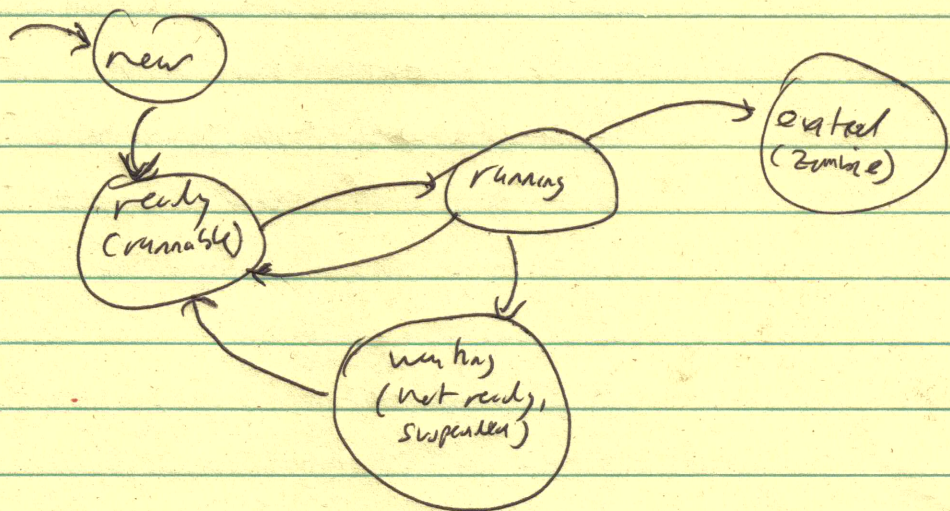 new
ready
(runnable)
running
exited
(zombie)
waiting
(not ready,
suspended)